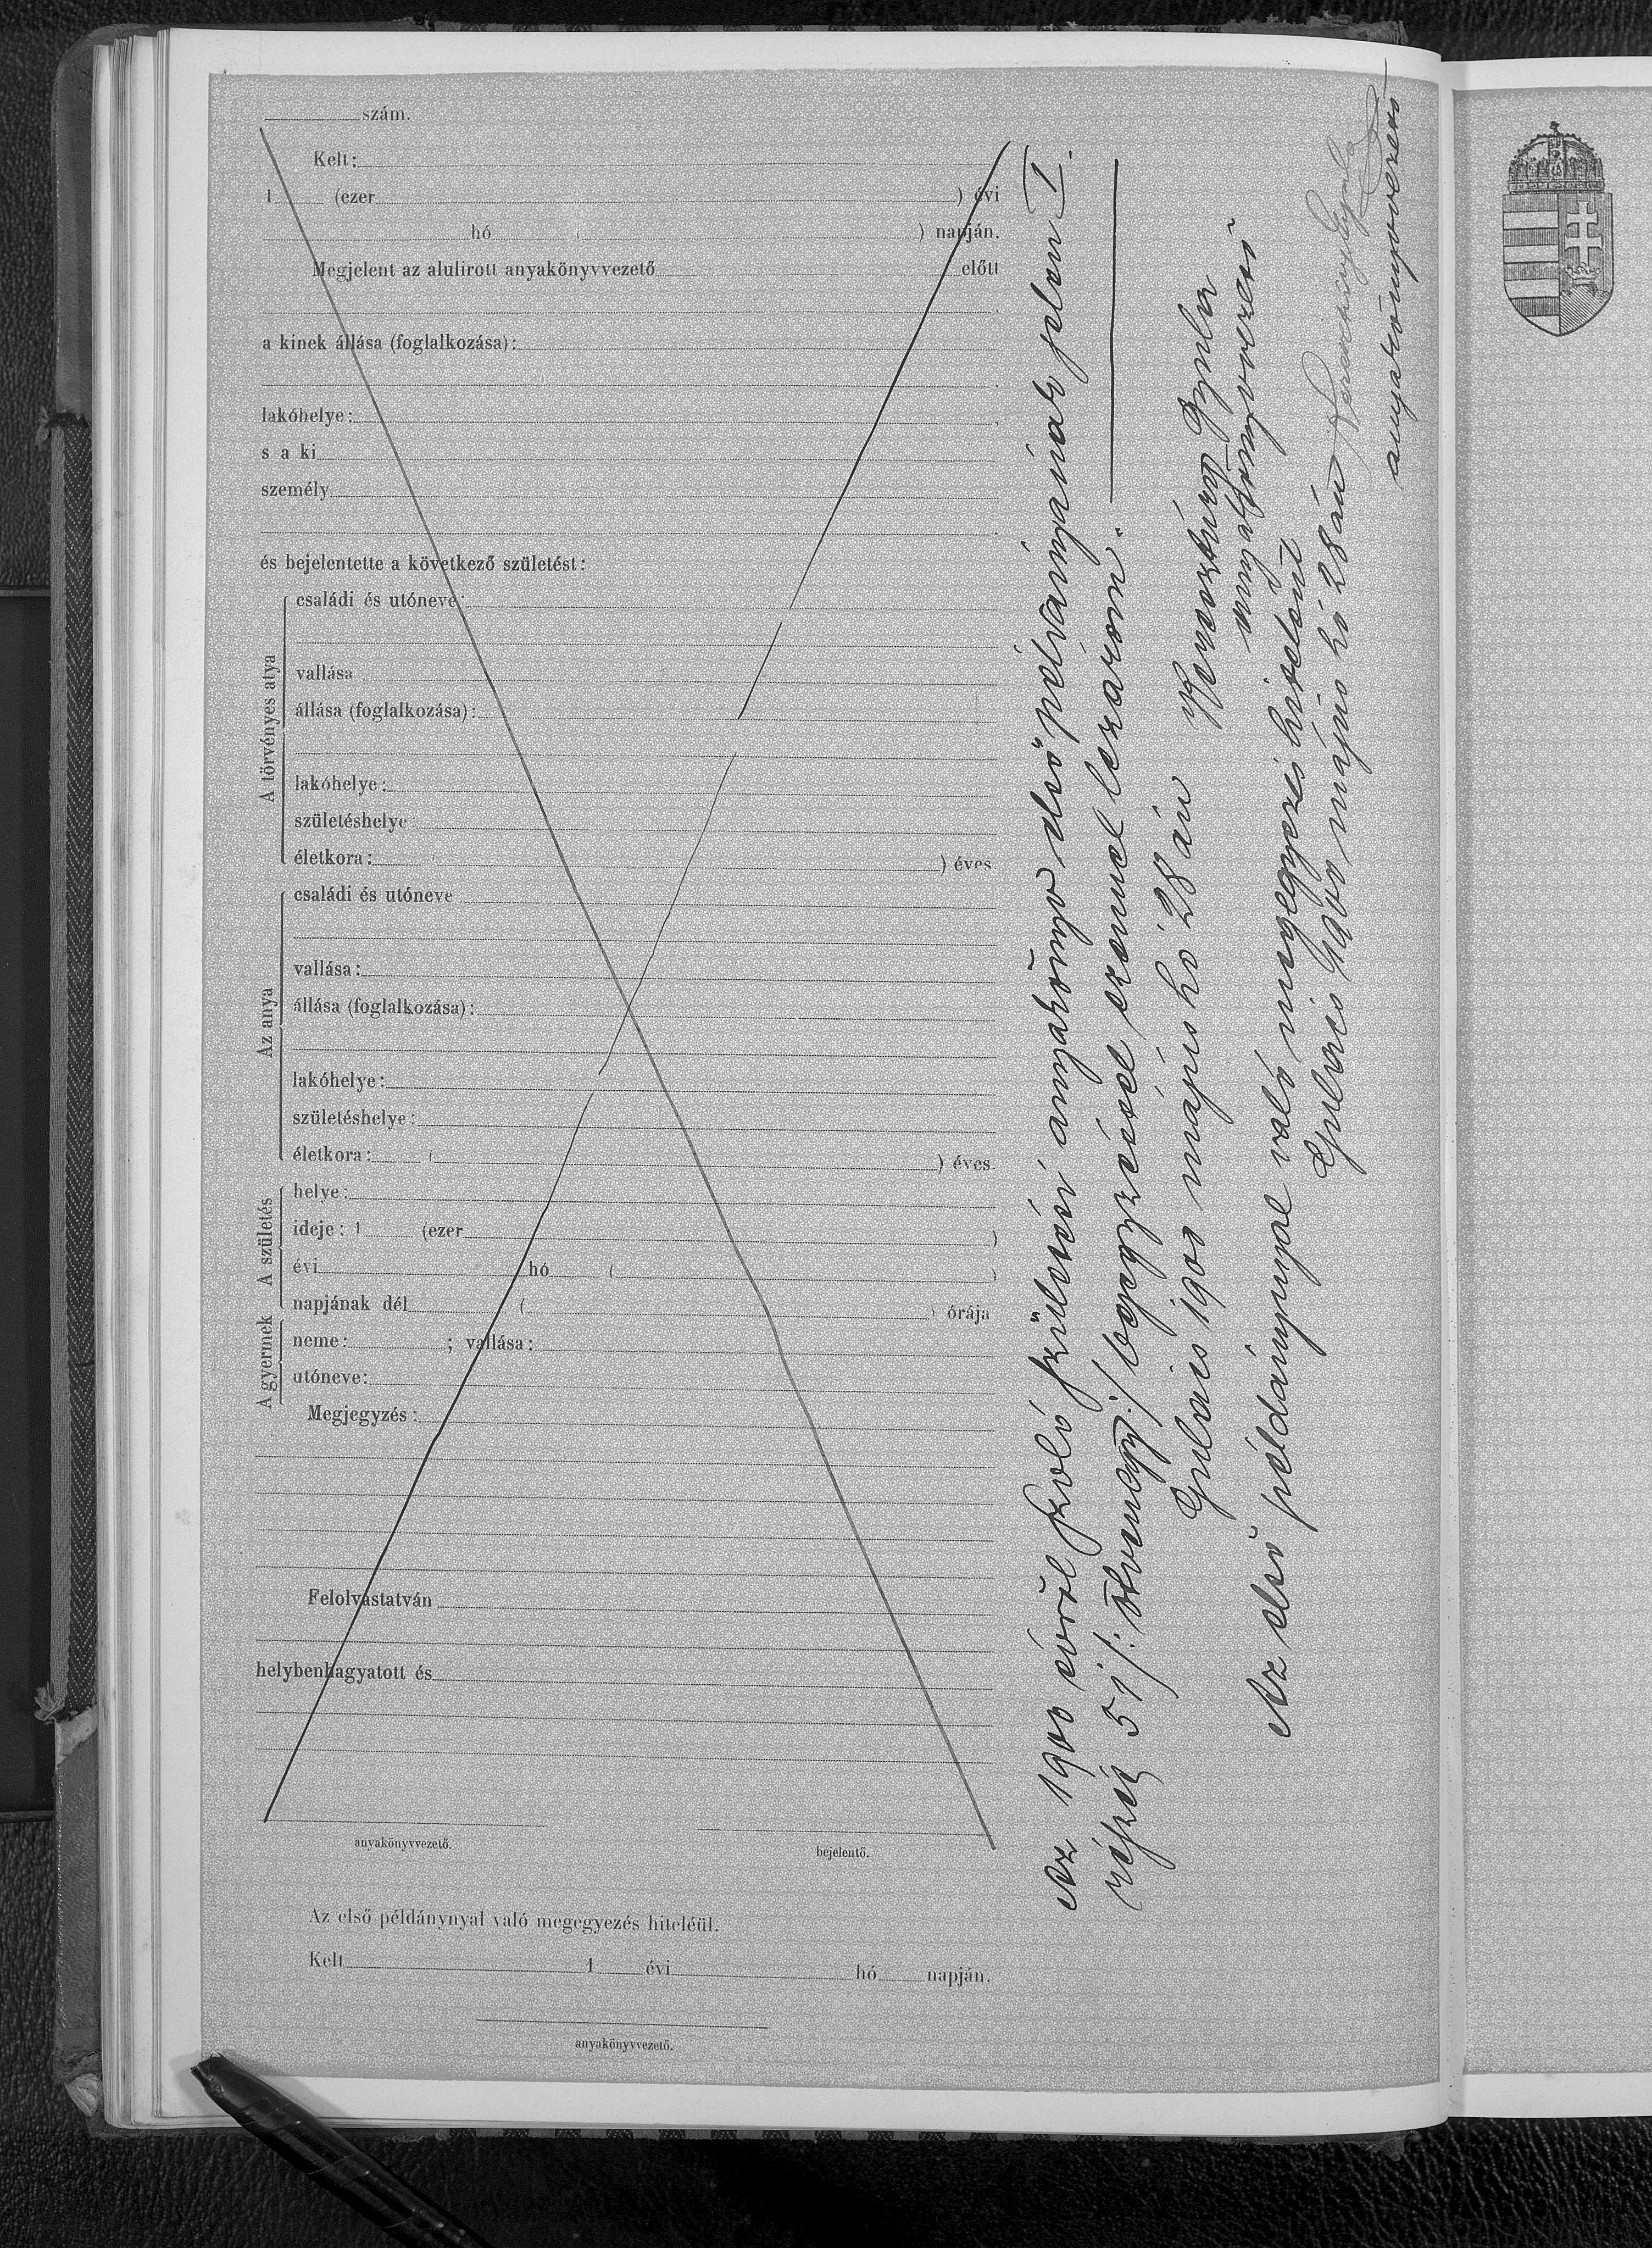 szám.
Kelt:
1 (ezer ) évi
hó ( ) napján.
Megjelent az alulirott anyakönyvvezető előtt
a kinek állása (foglalkozása):
lakóhelye:
s a ki
személy
és bejelentette a következő születést:
A törvényes atya
családi és utóneve:
vallása
állása (foglalkozása):
lakóhelye:
születéshelye
életkora: ( ) éves
Az anya
családi és utóneve
vallása:
állása (foglalkozása):
lakóhelye:
születéshelye:
életkora: ( ) éves.
A születés
helye:
ideje: 1 (ezer )
évi hó ( )
napjának dél ( ) órája
A gyermek
neme: ; vallása:
utóneve:
Megjegyzés:
Felolvastatván
helybenhagyatott és
anyakönyvvezető.
bejelentő.
Az első példánynyal való megegyezés hiteléül.
Kelt 1 évi hó napján.
anyakönyvvezető.
Az 1900 évről szóló születési anyakönyv első példányának jelen I.
részét 51 /: ötvenegy :/ bejegyzéssel ezennel lezárom.
1900 május hó 28 án
Keresztúry Gyula
anyakönyvvezető
Az első példánynyal való megegyezés hiteléül
1900 május hó 28 án Keresztúry Gyula
anyakönyvvezető